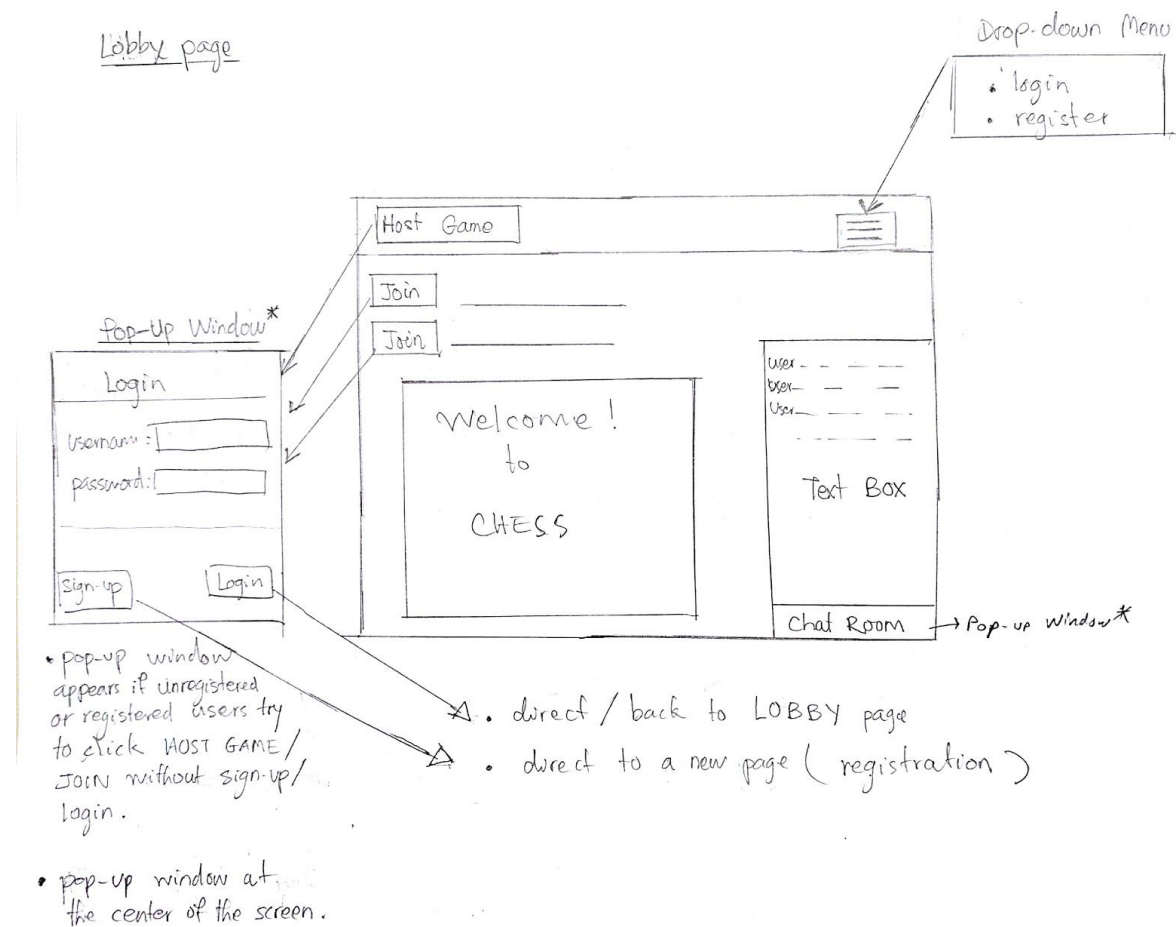 Lobby page
Drop-down Menu
• login
• register
Host Game
Join
Join
Pop-Up Window*
Login
username:
password:
Sign-up
Login
Welcome!
to
CHESS
user
user
User
Text Box
Chat Room
Pop-up Window*
• pop-up window
appears if unregistered
or registered users try
to click HOST GAME/
JOIN without sign-up/
login.
• pop-up window at
the center of the screen.
• direct / back to LOBBY page
• direct to a new page ( registration )